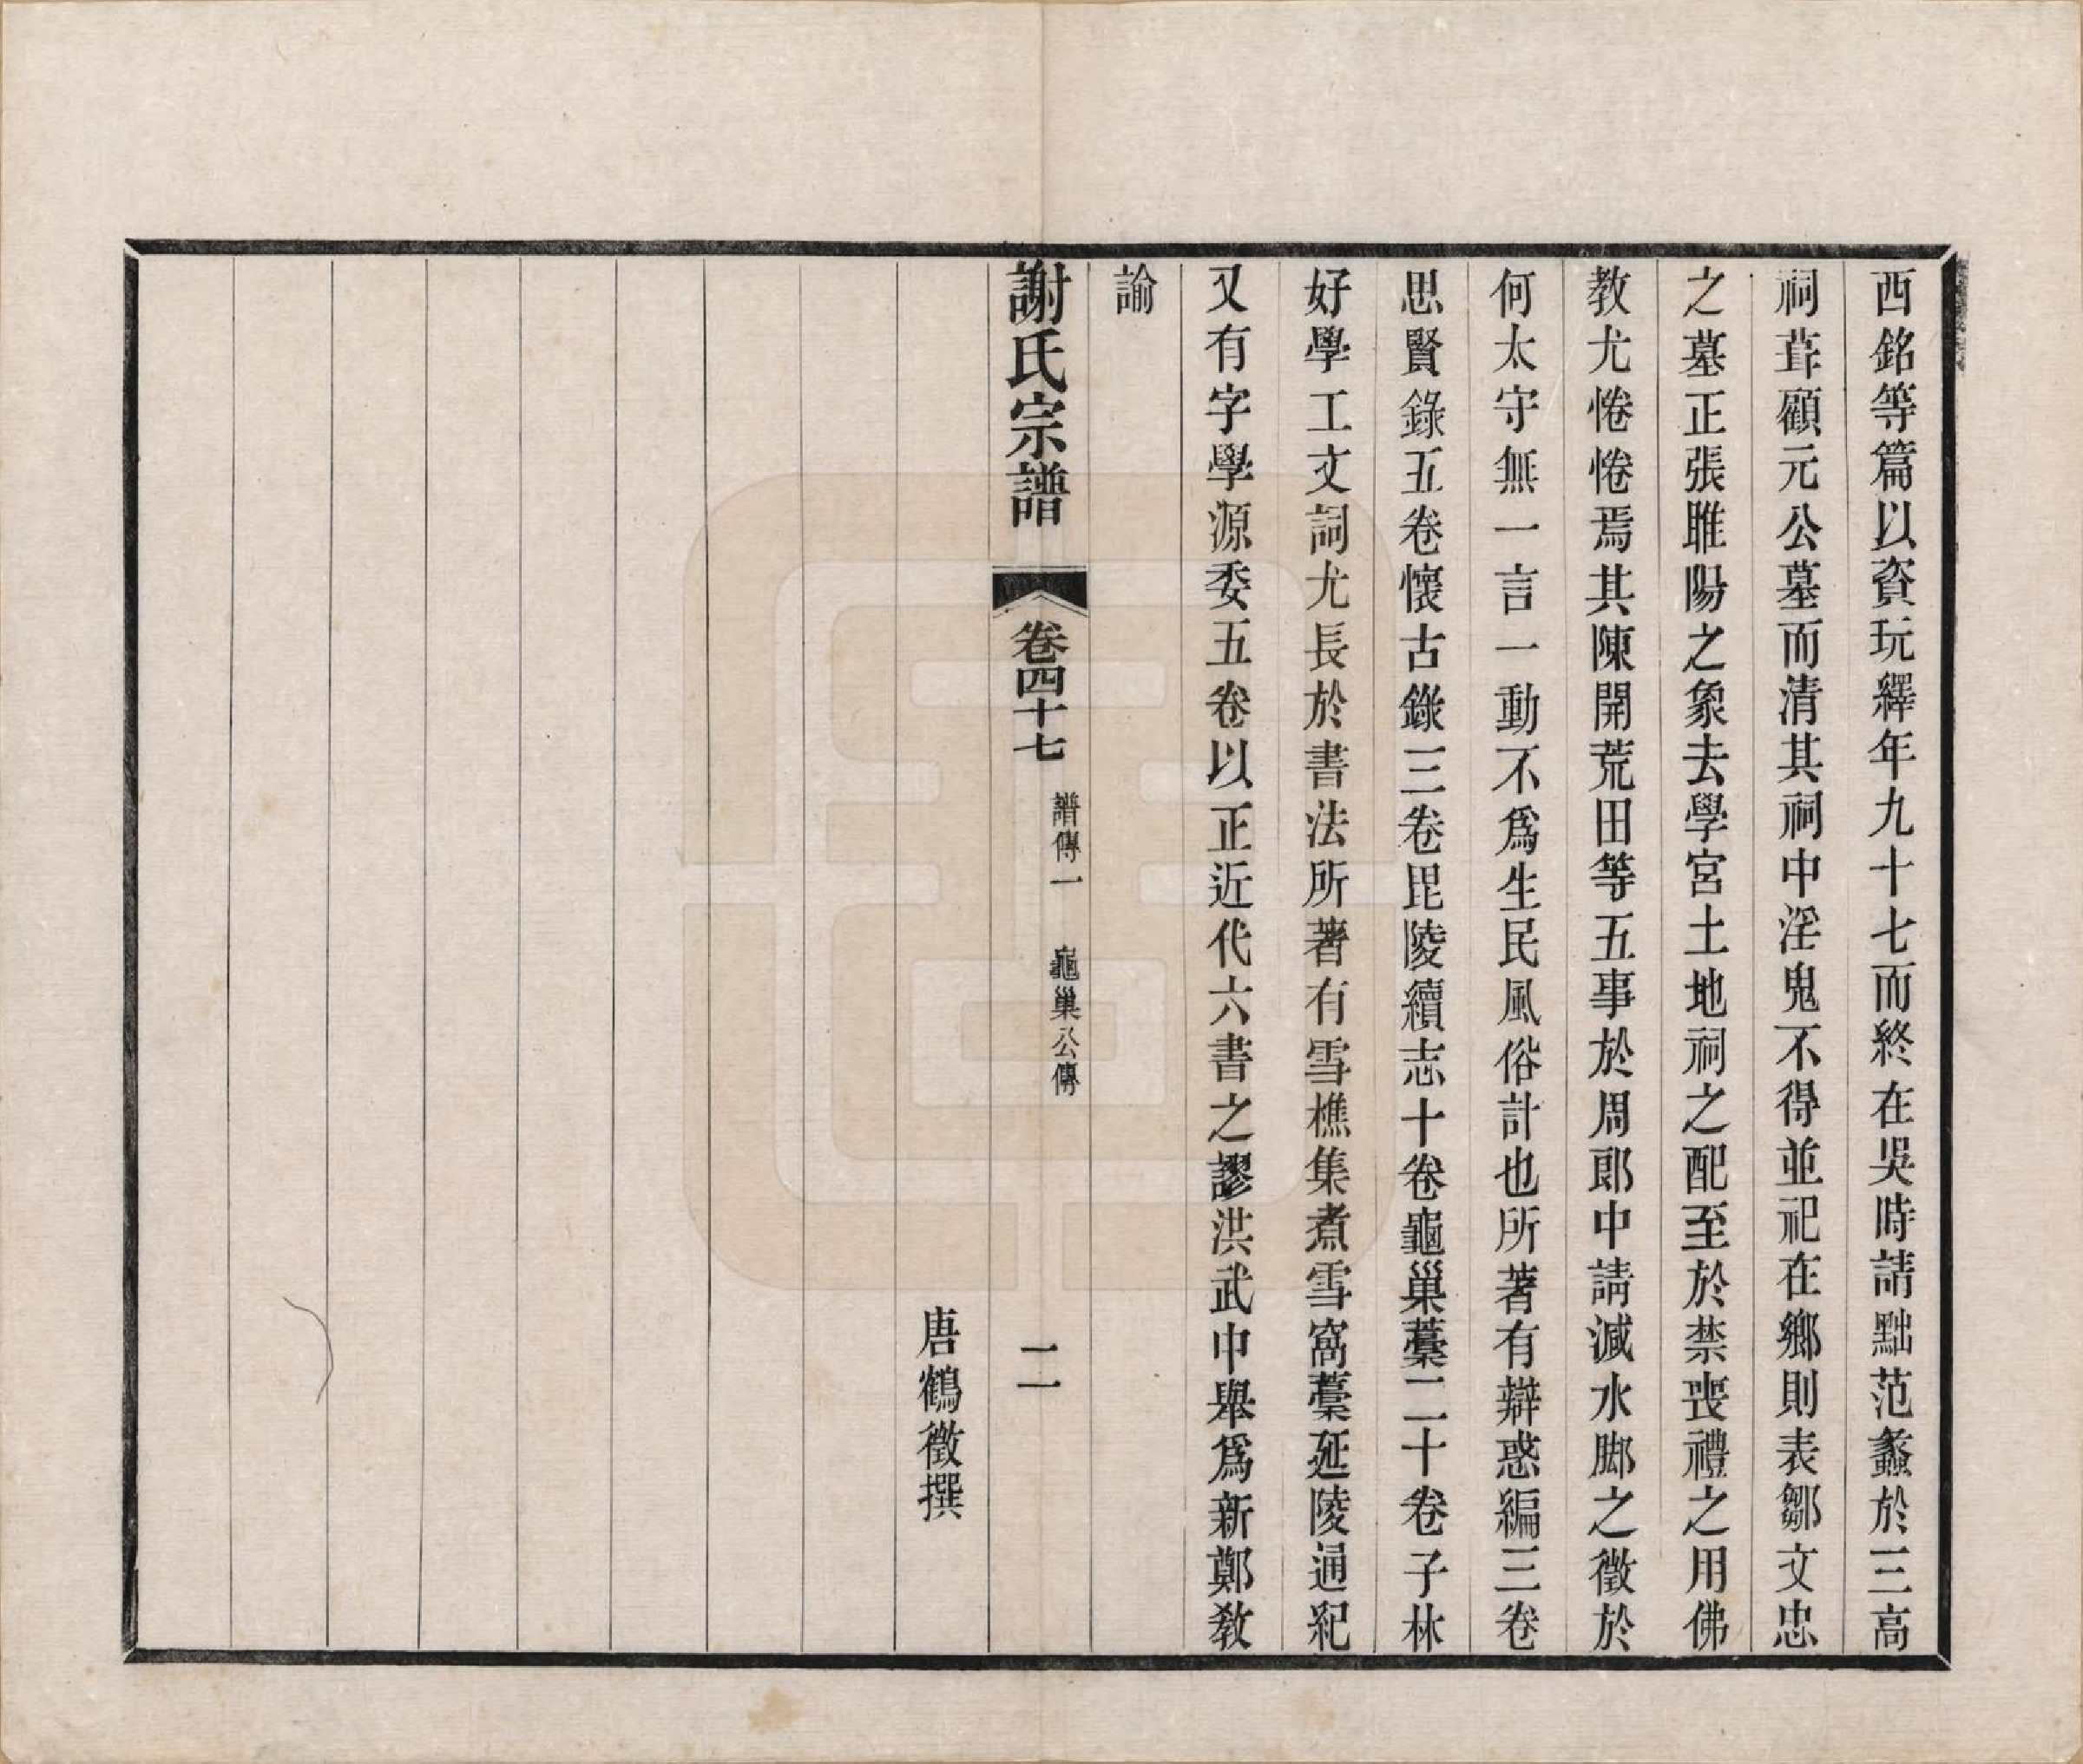 西銘等篇以資玩繹年九十七而終在吳時請黜范蠡於三高
祠葺顧元公墓而清其祠中淫鬼不得並祀在鄉則表鄒文忠
之墓正張睢陽之象去學宮土地祠之配至於禁喪禮之用佛
教尤惓惓焉其陳開荒田等五事於周郎中請減水腳之徵於
何太守無一言一動不為生民風俗計也所著有辯惑編三卷
思賢錄五卷懷古錄三卷毘陵續志十卷龜巢藁二十卷子林
好學工文詞尤長於書法所著有雪樵集煮雪窩藁延陵通紀
又有字學源委五卷以正近代六書之謬洪武中舉為新鄭教
諭
謝氏宗譜 卷四十七 譜傳一 龜巢公傳 二
唐鶴徵撰